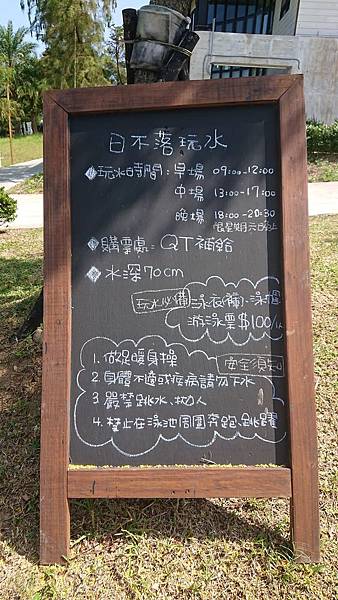 日不落玩水
◆玩水時間:早場 09:00-12:00
中場 13:00-17:00
晚場 18:00-20:30
◆購票處:QT補給
◆水深70cm
玩水必備 泳衣褲、泳帽
游泳票$100/人
安全須知
1. 做足暖身操
2. 身體不適或疾病請勿下水
3 嚴禁跳水、拋人
4. 禁止在泳池周圍奔跑、跳躍